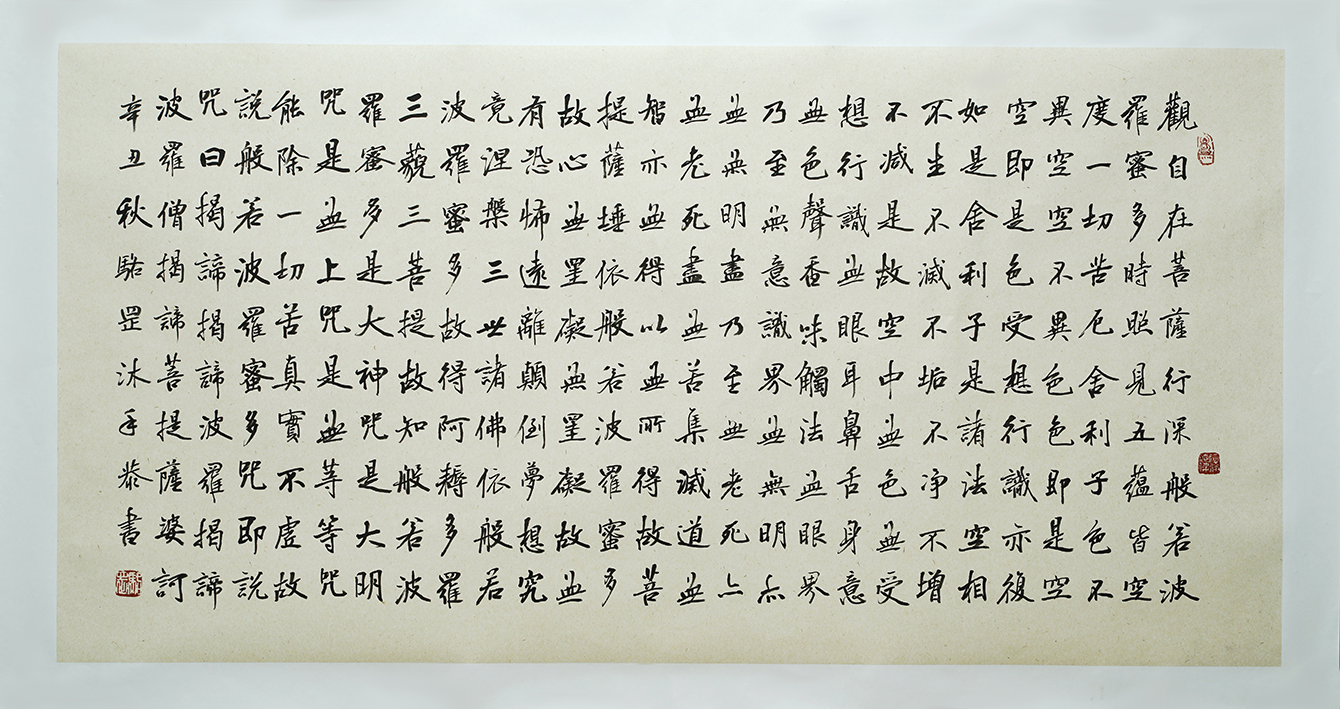 觀自在菩薩行深般若波
羅蜜多時照見五蘊皆空
度一切苦厄舍利子色不
異空空不異色色即是空
空即是色受想行識亦復
如是舍利子是諸法空相
不生不滅不垢不净不增
不減是故空中無色無受
想行識無眼耳鼻舌身意
無色聲香味觸法無眼界
乃至無意識界無無明亦
無無明盡乃至無老死亦
無老死盡無苦集滅道無
智亦無得以無所得故菩
提薩埵依般若波羅蜜多
故心無罣礙無罣礙故無
有恐怖遠離顛倒夢想究
竟涅槃三世諸佛依般若
波羅蜜多故得阿耨多羅
三藐三菩提故知般若波
羅蜜多是大神咒是大明
咒是無上咒是無等等咒
能除一切苦真實不虛故
說般若波羅蜜多咒即說
咒曰揭諦揭諦波羅揭諦
波羅僧揭諦菩提薩婆訶
辛丑秋駱罡沐手恭書